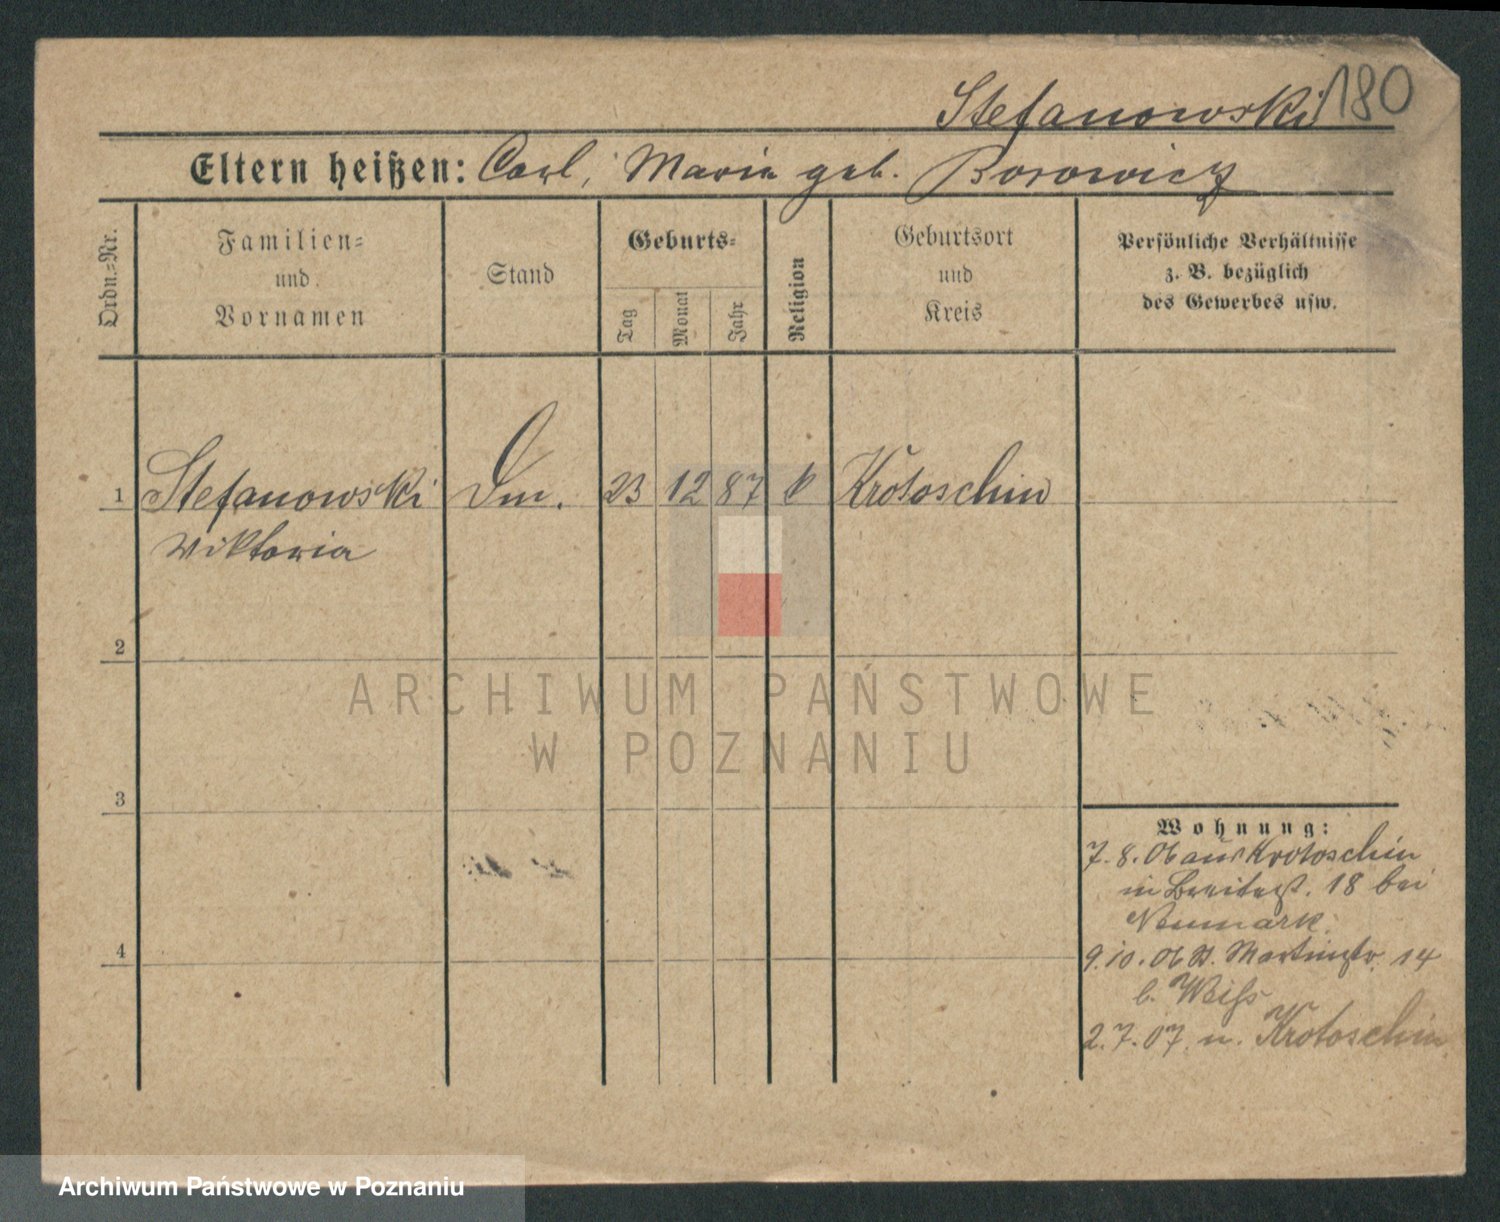 Stefanowski 180
Eltern heißen: Carl, Maria geb. Borowicz
Ordn.-Nr.
Familien-
und
Vornamen
Stand
Geburts-
Tag
Monat
Jahr
Religion
Geburtsort
und
Kreis
Persönliche Verhältnisse
z. B. bezüglich
des Gewerbes usw.
1 Stefanowski 23 12 87 k Krotoschin
Viktoria
2
3
4
Wohnung:
7.8.06 aus Krotoschin
in Breitestr. 18 bei
Neumark.
9.10.06 St. Martinstr. 14
b. Weiß
2.7.07. n. Krotoschin
ARCHIWUM PAŃSTWOWE
W POZNANIU
Archiwum Państwowe w Poznaniu